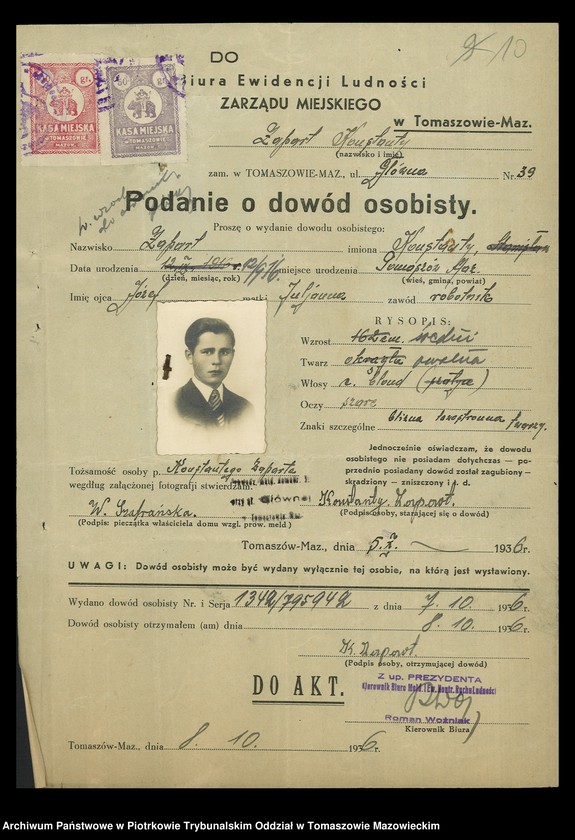 DO
Biura Ewidencji Ludności
ZARZĄDU MIEJSKIEGO
w Tomaszowie-Maz.
gr. 50 gr.
KASA MIEJSKA KASA MIEJSKA
W TOMASZOWIE W TOMASZOWIE
MAZOW. MAZOW.
Zapart Konstanty
(nazwisko i imię)
zam. w TOMASZOWIE-MAZ., ul. Główna Nr. 39
Podanie o dowód osobisty.
Proszę o wydanie dowodu osobistego:
Nazwisko Zapart imiona Konstanty,
Data urodzenia miejsce urodzenia Tomaszów Maz.
(dzień, miesiąc, rok) (wieś, gmina, powiat)
Imię ojca Józef matki Juljanna zawód robotnik
RYSOPIS:
Wzrost 162 cm. średni
Twarz okrągła owalna
Włosy c. blond
Oczy szare
Znaki szczególne blizna twarzy.
Jednocześnie oświadczam, że dowodu
osobistego nie posiadam dotychczas — po-
przednio posiadany dowód został zagubiony —
skradziony — zniszczony i t. d.
Tożsamość osoby p. Konstantego Zaparta
według załączonej fotografii stwierdzam.
przy ul. Głównej
W. Szafrańska. Konstanty Zapart.
(Podpis: pieczątka właściciela domu wzgl. prow. meld.) (Podpis osoby, starającej się o dowód)
Tomaszów-Maz., dnia 5.X. 1936 r.
UWAGI: Dowód osobisty może być wydany wyłącznie tej osobie, na którą jest wystawiony.
Wydano dowód osobisty Nr. i Serja 1342/795942 z dnia 7.10. 1936 r.
Dowód osobisty otrzymałem (am) dnia 8.10. 1936 r.
K. Zapart.
(Podpis osoby, otrzymującej dowód)
DO AKT.
Z up. PREZYDENTA
Kierownik Biura Meld. i Ew. Kontr. Ruchu Ludności
Roman Woźniak
Kierownik Biura
Tomaszów-Maz., dnia 8. 10. 1936 r.
Archiwum Państwowe w Piotrkowie Trybunalskim Oddział w Tomaszowie Mazowieckim